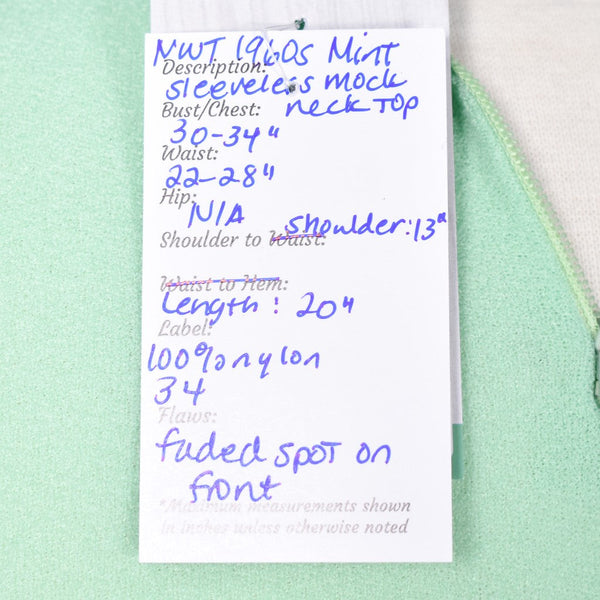 NWT 1960s Mint
Description:
sleeveless mock
Bust/Chest: neck TOP
30-34"
Waist:
22-28"
Hip:
N/A
Shoulder to Waist: shoulder: 13"
Waist to Hem:
Length: 20"
Label:
100% nylon
34
Flaws:
faded spot on
front
*Maximum measurements shown
in inches unless otherwise noted